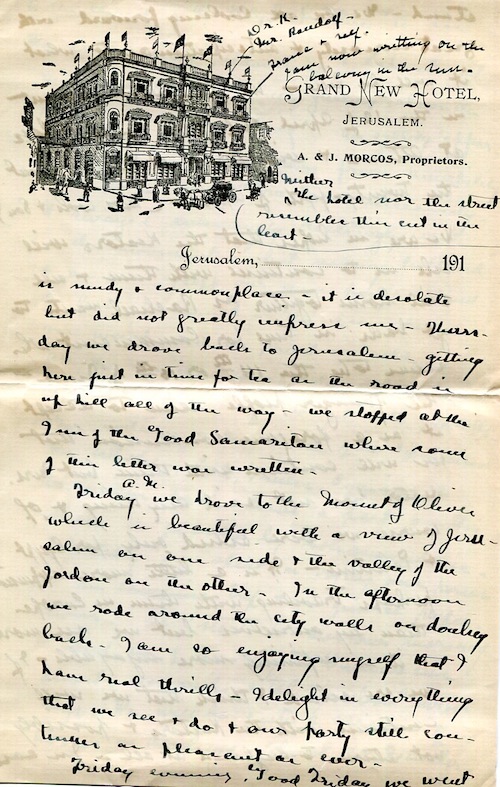 Dr. K.
Mr. Randolf -
France & self.
I am now writting on the
balcony in the sun.
GRAND NEW HOTEL,
JERUSALEM.
A. & J. MORCOS, Proprietors.
Neither
The hotel nor the street
resembles this cut in the
least -
Jerusalem, 191
is muddy & commonplace - it is desolate
but did not greatly impress me - Thurs-
day we drove back to Jerusalem - getting
here just in time for tea as the road is
up hill all of the way - we stopped at the
Inn of the Good Samaritan where some
of this letter was written.
Friday A.M. we drove to the Mount of Olives
which is beautiful with a view of Jeru-
salem on one side & the valley of the
Jordon on the other - In the afternoon
we rode around the city walls on donkey
back - I am so enjoying myself that I
have real thrills - I delight in everything
that we see & do & our party still con-
tinues as pleasant as ever -
Friday evening, Good Friday we went